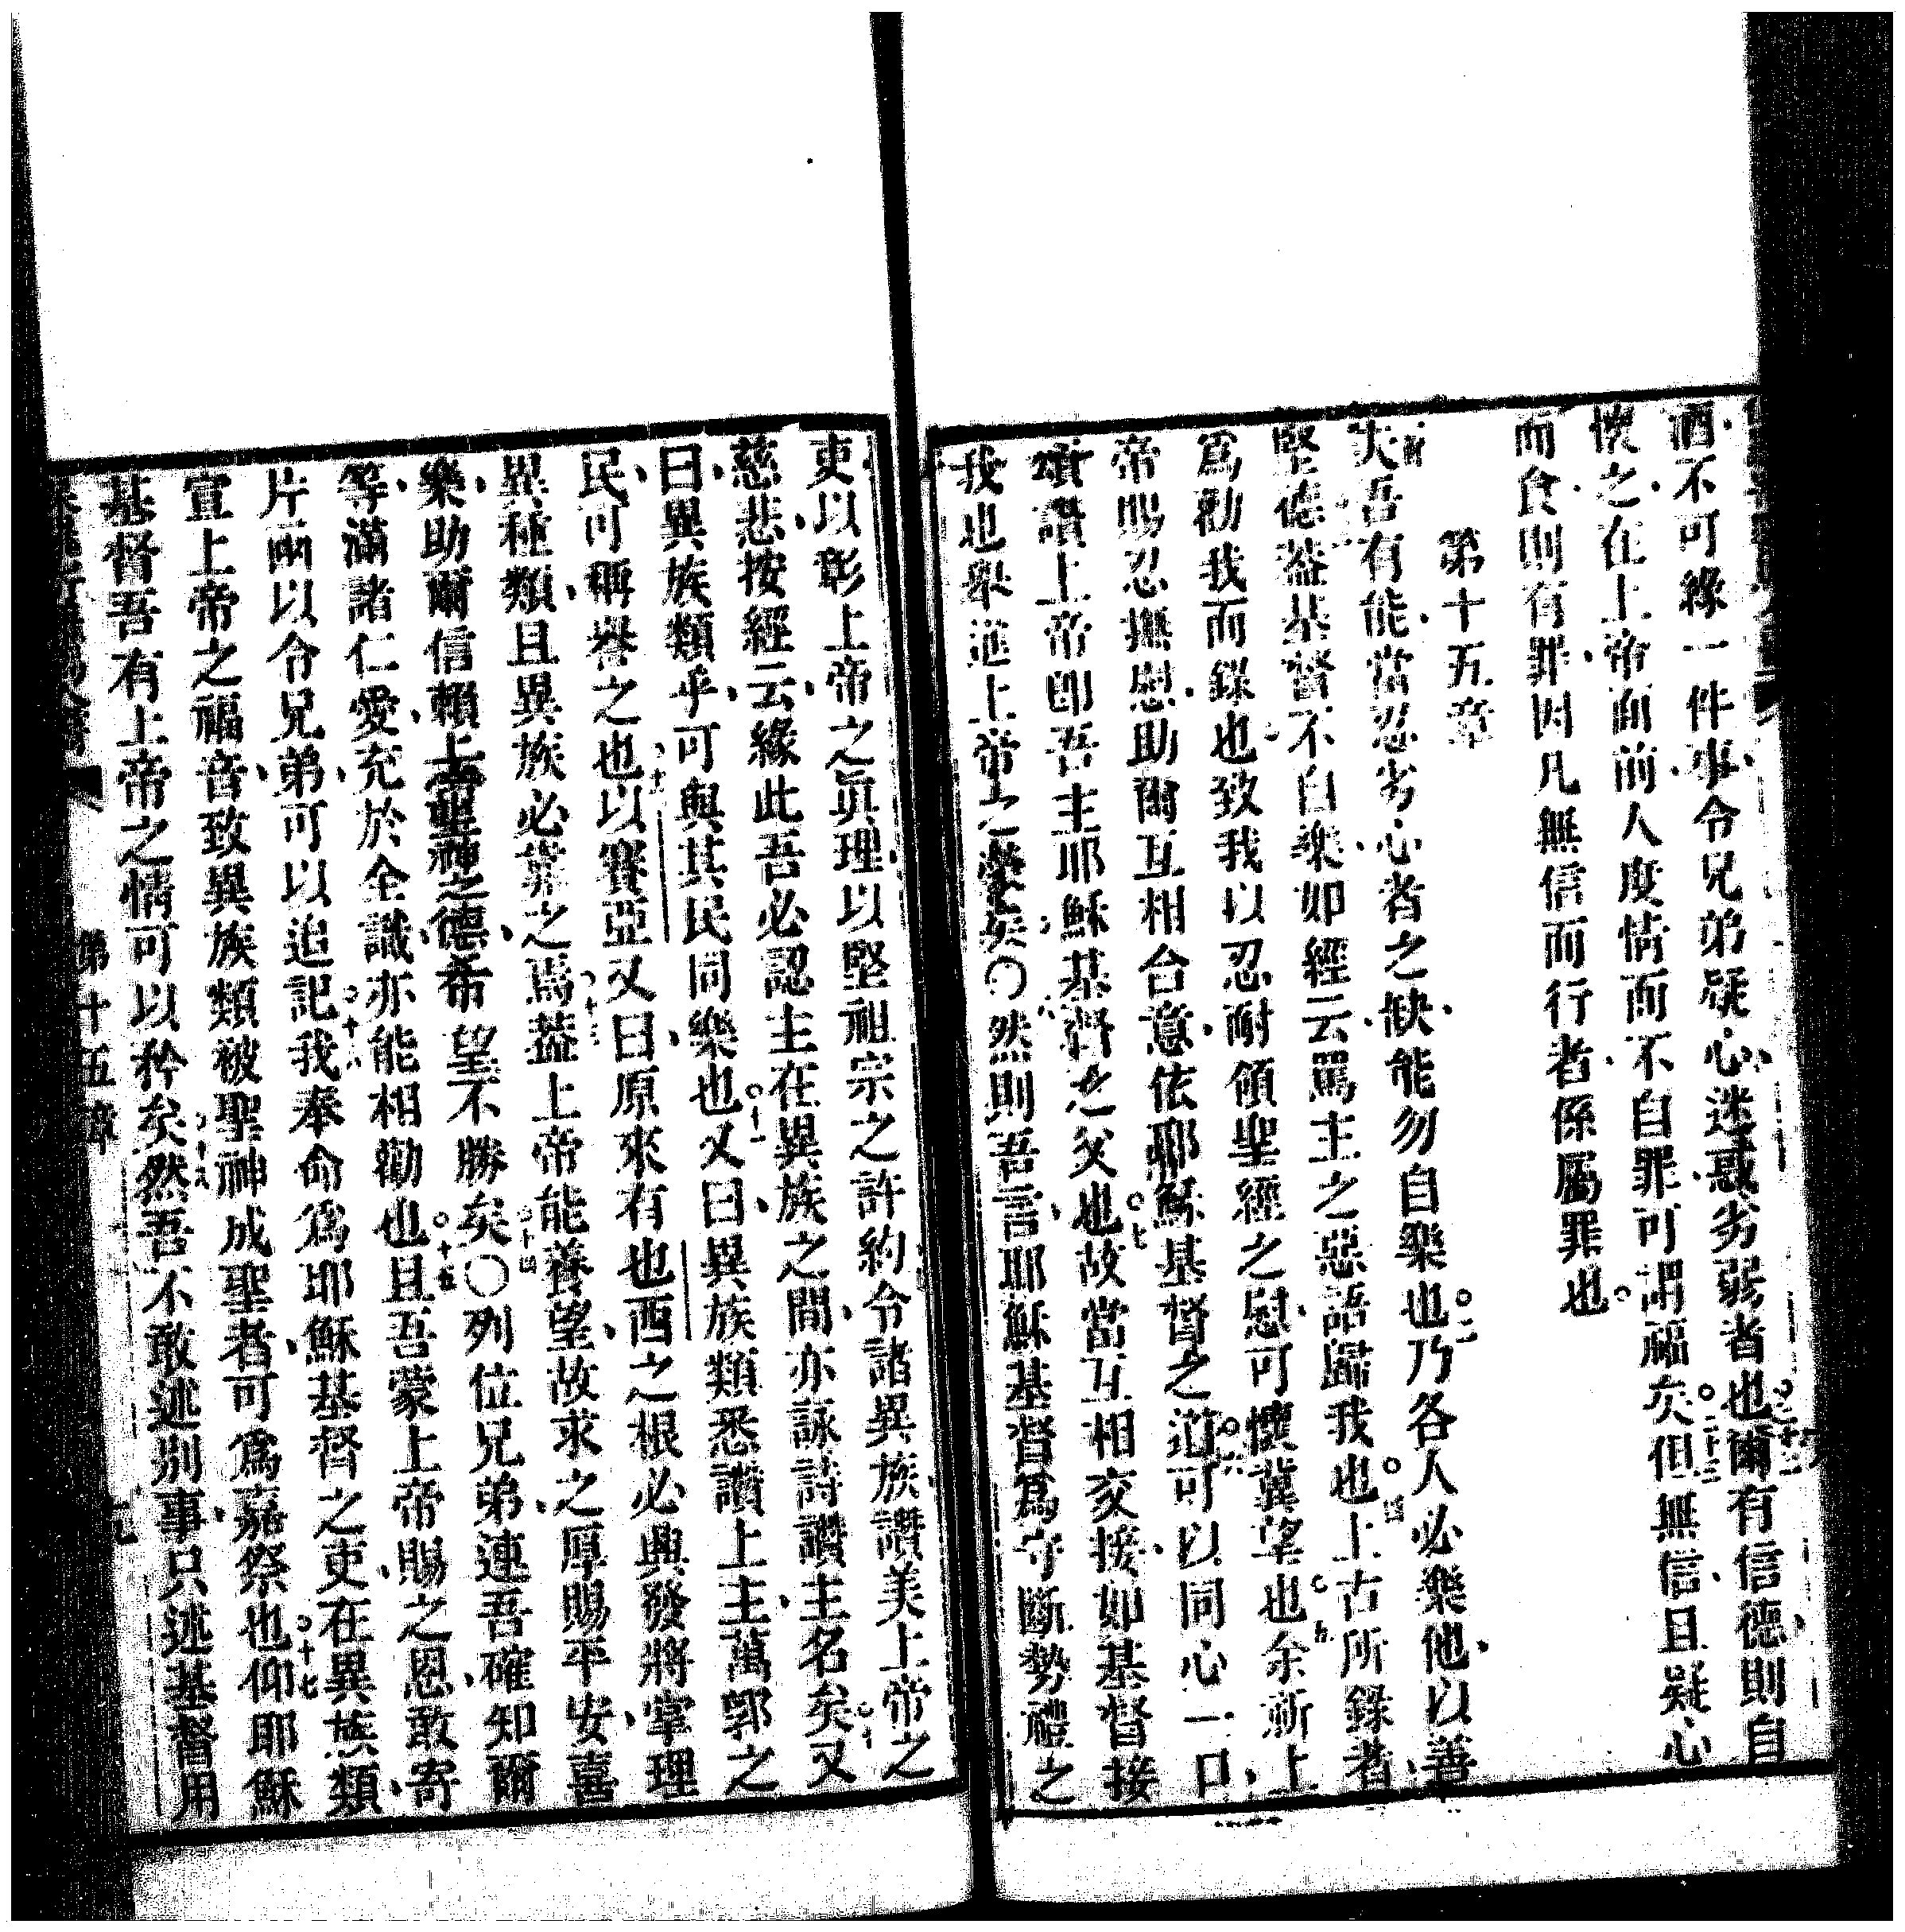 酒不可緣一件事令兄弟疑心迷惑劣弱者也○二十二爾有信德則自
懷之在上帝面前人度情而不自罪可謂福矣○二十三但無信且疑心
而食則有罪因凡無信而行者係屬罪也○
第十五章
夫吾有能當忍劣心者之缺能勿自樂也○二乃各人必樂他以善
堅德蓋基督不自樂如經云罵主之惡語歸我也○四上古所錄者
爲勸我而錄也致我以忍耐領聖經之慰可懷冀望也○五余祈上
帝賜忍撫慰助爾互相合意依耶穌基督之道○六可以同心一口
頌讚上帝卽吾主耶穌基督之父也○七故當互相交接如基督接
我也舉進上帝之榮矣○然則吾言耶穌基督爲守斷勢禮之
吏以彰上帝之眞理以堅祖宗之許約令諸異族讚美上帝之
慈悲按經云緣此吾必認主在異族之間亦詠詩讚主名矣○十又
曰異族類乎可與其民同樂也○十一又曰異族類悉讚上主萬郭之
民可稱譽之也○十二以賽亞又曰原來有也西之根必興發將宰理
異種類且異族必靠之焉○十三蓋上帝能養望故求之厚賜平安喜
樂助爾信賴上帝聖神之德希望不勝矣○十四○列位兄弟連吾確知爾
等滿諸仁愛充於全識亦能相勸也○十五且吾蒙上帝賜之恩敢寄
片函以令兄弟可以追記○十六我奉命爲耶穌基督之吏在異族類
宣上帝之福音致異族類被聖神成聖者可爲嘉祭也○十七仰耶穌
基督吾有上帝之情可以矜矣○十八然吾不敢述別事只述基督用
第十五章 九